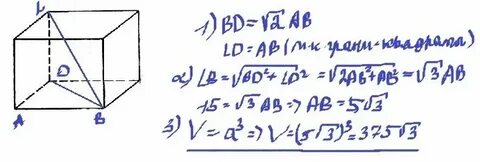 L
D
A
B
1) BD = √2 AB
LD = AB (т.к. грани - квадраты)
2) LB = √BD² + LD² = √2AB² + AB² = √3 AB
15 = √3 AB => AB = 5√3
3) V = a³ => V = (5√3)³ = 375√3